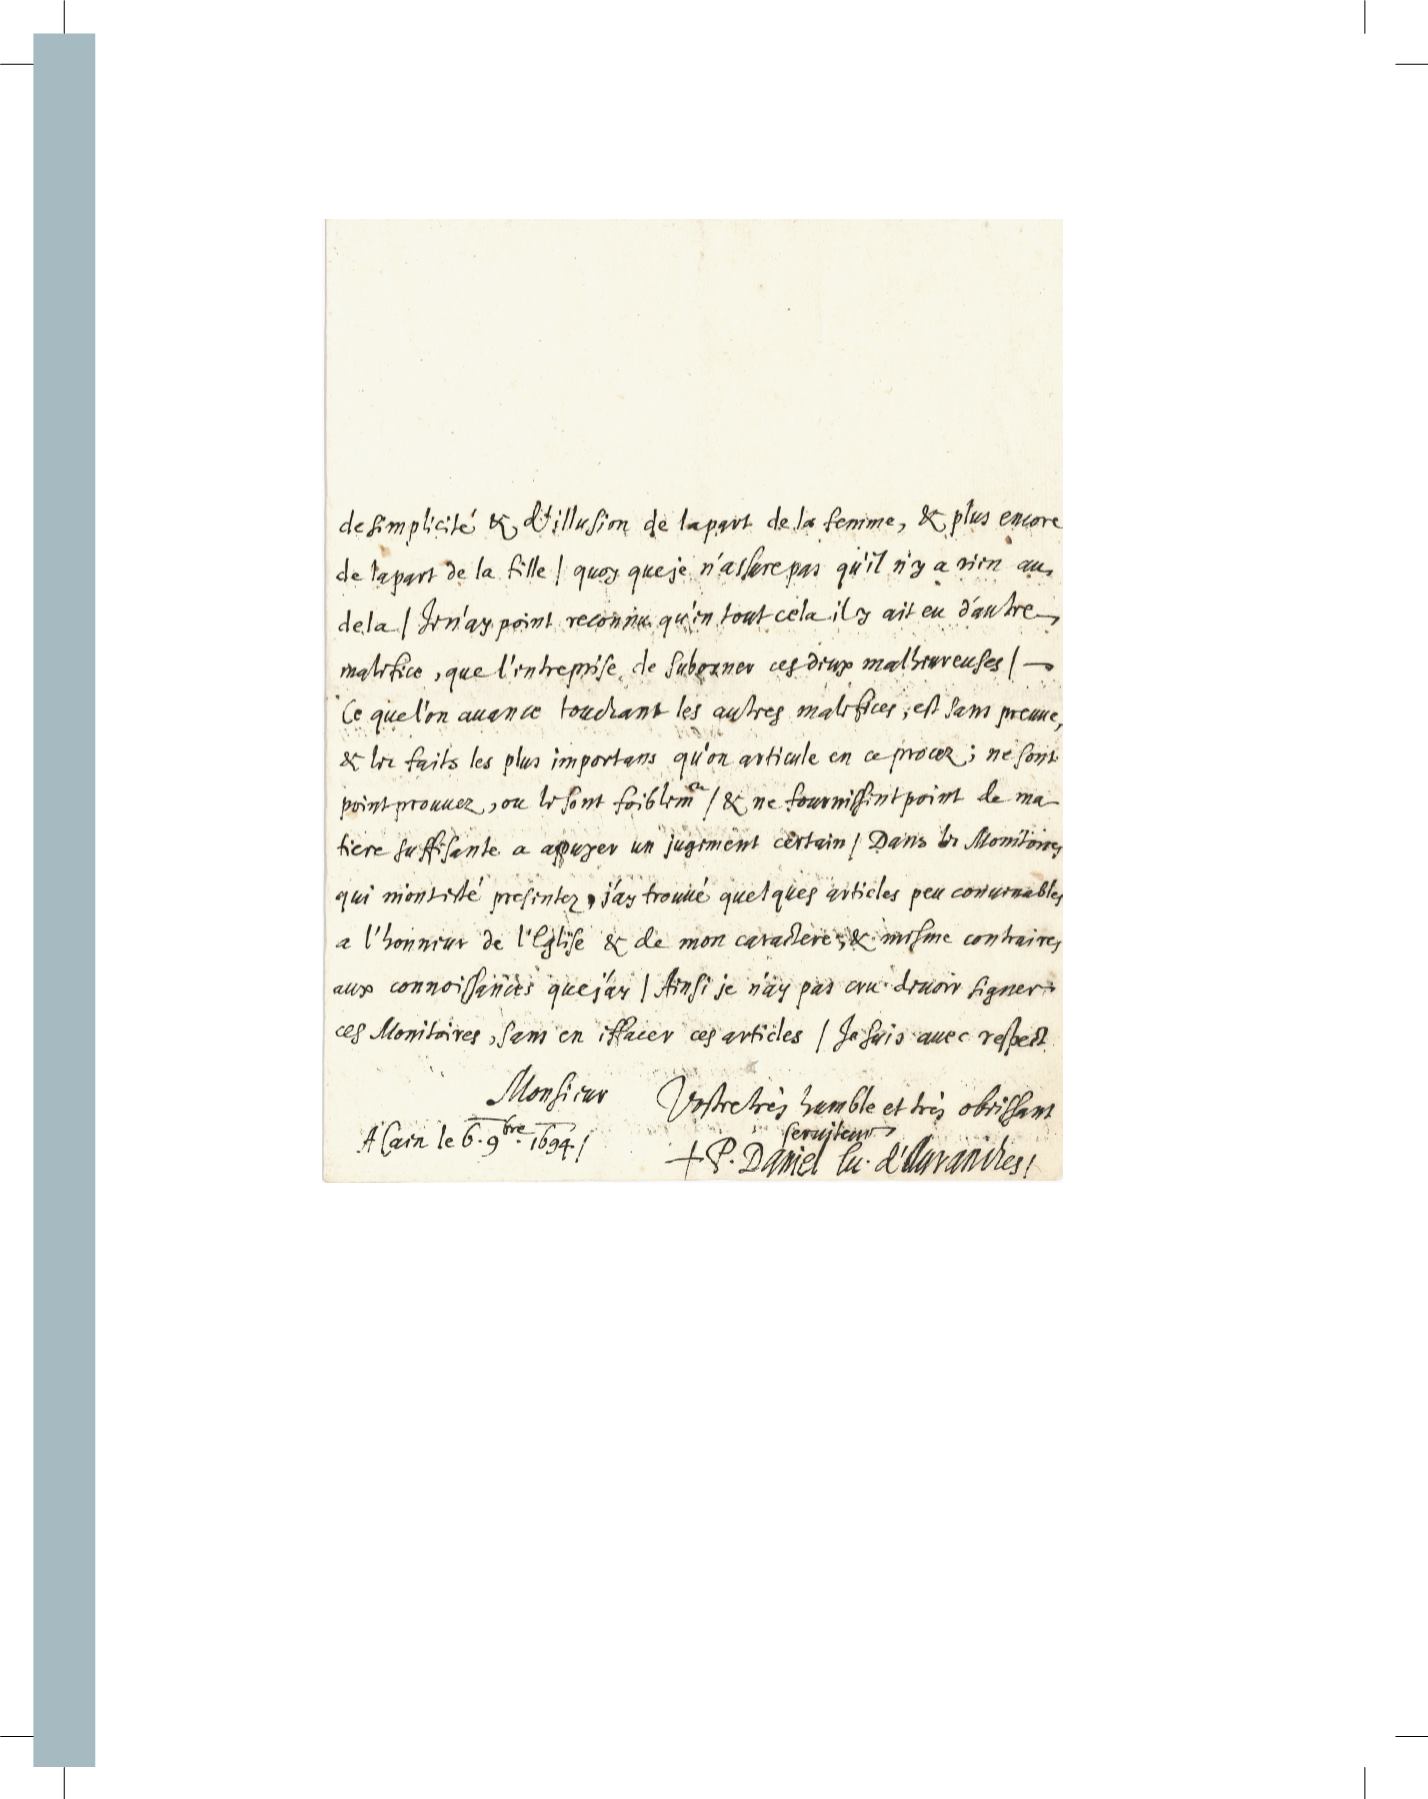 de simplicité & d'illusion de la part de la femme, & plus encore
de la part de la fille / quoy que je n'assure pas qu'il n'y a rien au
dela / Je n'ay point reconnu qu'en tout cela il y ait eu d'autre
malefice, que l'entreprise de suborner ces deux malheureuses /
Ce que l'on avance touchant les autres malefices, est sans preuve,
& les faits les plus importans qu'on articule en ce procez; ne sont
point prouvez, ou le sont foiblemt / & ne fournissent point de ma
tiere suffisante a appuyer un jugement certain / Dans les Monitoires
qui m'ont esté presentez, j'ay trouvé quelques articles peu convenables
a l'honneur de l'Eglise & de mon caractere; & mesme contraires
aux connoissances que j'ay / Ainsi je n'ay pas cru devoir signer
ces Monitoires, sans en effacer ces articles / Je suis avec respect
Monsieur
Vostre très humble et très obeissant
serviteur
A Caen le 6. 9bre. 1694 /
+ P. Daniel Ev. d'Avranches /